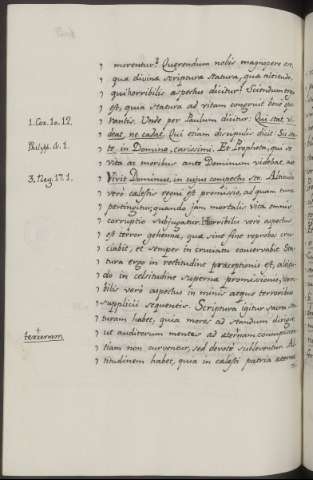 merentur? Quærendum nobis magnopere est,
quæ divinæ scriptura statura, quæ altitudo,
qui horribilis aspectus dicitur? Sciendum
est, quia statura ad vitam congruit bene
rantis. Unde per Paulum dicitur: Qui stat, vi-
1. Cor. 10. 12.
deat, ne cadat. Qui etiam discipulis dicit: Sic sta-
te in Domino, carissimi. Et Propheta, qui se
Philipp. 4. 1.
vita ac moribus ante Dominum videbat, ait:
Vivit Dominus, in cujus conspectu sto. Altitudo
3. Reg. 17. 1.
verò cælestis regni est promissio, ad quam tunc
pertingitur, quando jam mortalis vitæ omnis
corruptio subjugatur. Horribilis verò aspectus
est terror gehennæ, qui sine fine reprobos cru-
ciabit, et semper in cruciatu conservabit. Sta-
tura ergo in rectitudine præceptionis est, altitu-
do in celsitudine supernæ promissionis, horri-
bilis verò aspectus in minis atque terroribus
supplicii sequentis. Scriptura igitur sacra sta-
turam habet, quia mores ad standum dirigit,
ut auditorum mentes ad
teriorem
tiam non curventur, sed devotè subleventur. Al-
titudinem habet, quia in cælesti patria æterna